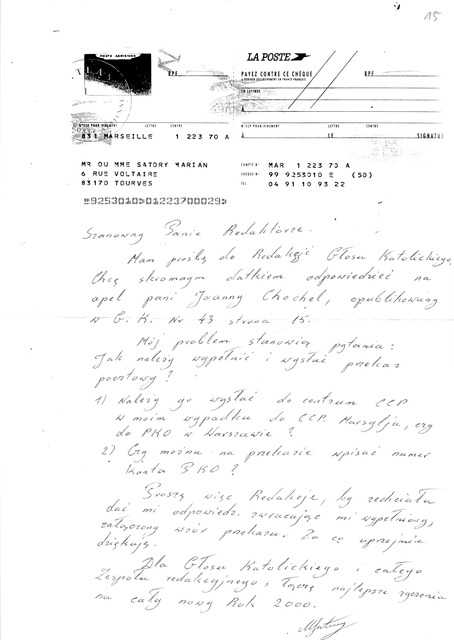 15
POSTE AERIENNE
LA POSTE
BPF
PAYEZ CONTRE CE CHÈQUE
BPF
EN LETTRES
À
N°CCP POUR VIREMENT LETTRE CENTRE
831 MARSEILLE 1 223 70 A
N°CCP POUR VIREMENT LETTRE CENTRE
À LE SIGNATU
MR OU MME SATORY MARIAN
6 RUE VOLTAIRE
83170 TOURVES
COMPTE N° MAR 1 223 70 A
CHÈQUE N° 99 9253010 E (50)
TEL 04 91 10 93 22
9253010 01223700029
Szanowny Panie Redaktorze.
Mam prośbę do Redakcji Głosu Katolickiego.
Chcę skromnym datkiem odpowiedzieć na
apel pani Joanny Chochel, opublikowany
w G.K. Nr 43 strona 15.
Mój problem stanowią pytania:
Jak należy wypełnić i wysłać przekaz
pocztowy?
1) Należy go wysłać do centrum CCP
w moim wypadku do CCP. Marsylja, czy
do PKO w Warszawie?
2) Czy można na przekazie wpisać numer
Konta PKO?
Proszę więc Redakcje, by zechciała
dać mi odpowiedz. zwracając mi wypełniony,
załączony wzór przekazu. Za co uprzejmie
dziękuję.
Dla Głosu Katolickiego i całego
Zespołu redakcyjnego; łączę najlepsze życzenia
na cały nowy Rok 2000.